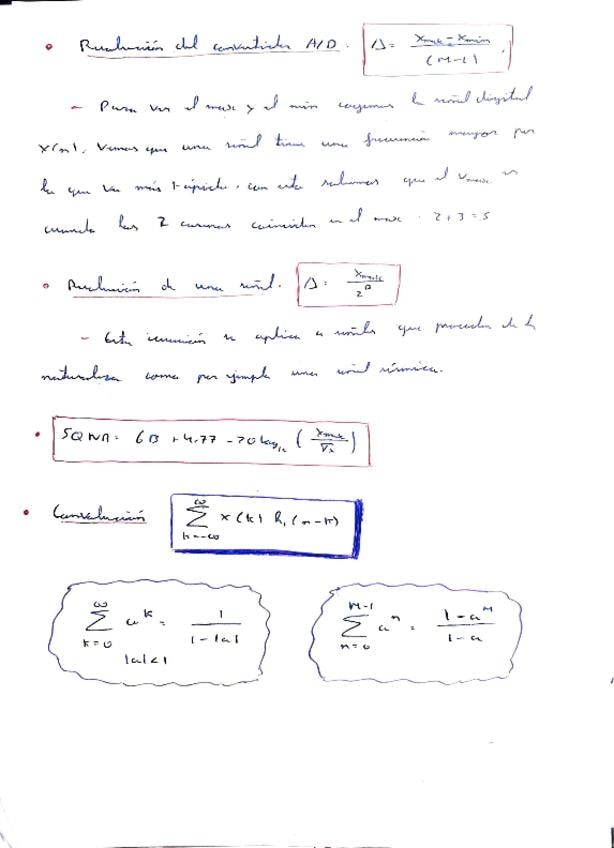 • Resolución del convertidor A/D. Δ = (xmax - xmin) / (M-1).
– Para ver el max y el min cogemos la señal digital
x(n). Vemos que una señal tiene una frecuencia mayor por
lo que va más rápida, con esto sabemos que el Vmax es
cuando las 2 curvas coinciden en el max. 2+3=5
• Resolución de una señal. Δ = xmax / 2^B
– Esta ecuación se aplica a señales que proceden de la
naturaleza como por ejemplo una señal sísmica.
• SQNR = 6B + 4,77 - 20 log10 (xmax / σx)
• Convolución ∑_{k=-∞}^{∞} x(k) h(n-k)
∑_{k=0}^{∞} a^k = 1 / (1-|a|) ∑_{n=0}^{M-1} a^n = (1-a^M) / (1-a)
|a|<1